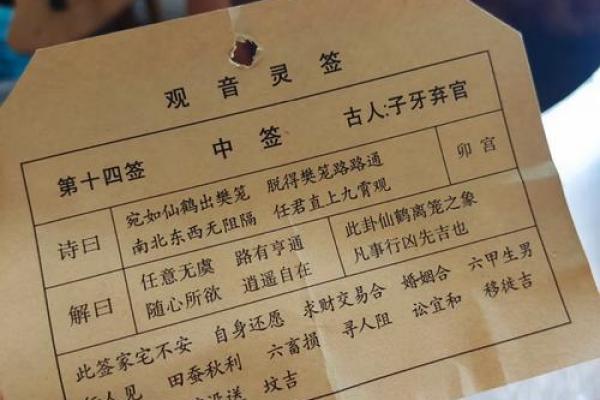 观音灵签
第十四签 中签 古人:子牙弃官
诗曰
宛如仙鹤出樊笼 脱得樊笼路路通
南北东西无阻隔 任君直上九霄观
卯宫
解曰
任意无虞 路有亨通
随心所欲 逍遥自在
此卦仙鹤离笼之象
凡事行凶先吉也
此签家宅不安 自身还愿 求财交易合 婚姻合 六甲生男
行人见 田蚕秋利 六畜损 寻人阻 讼宜和 移徙吉
送 坟吉